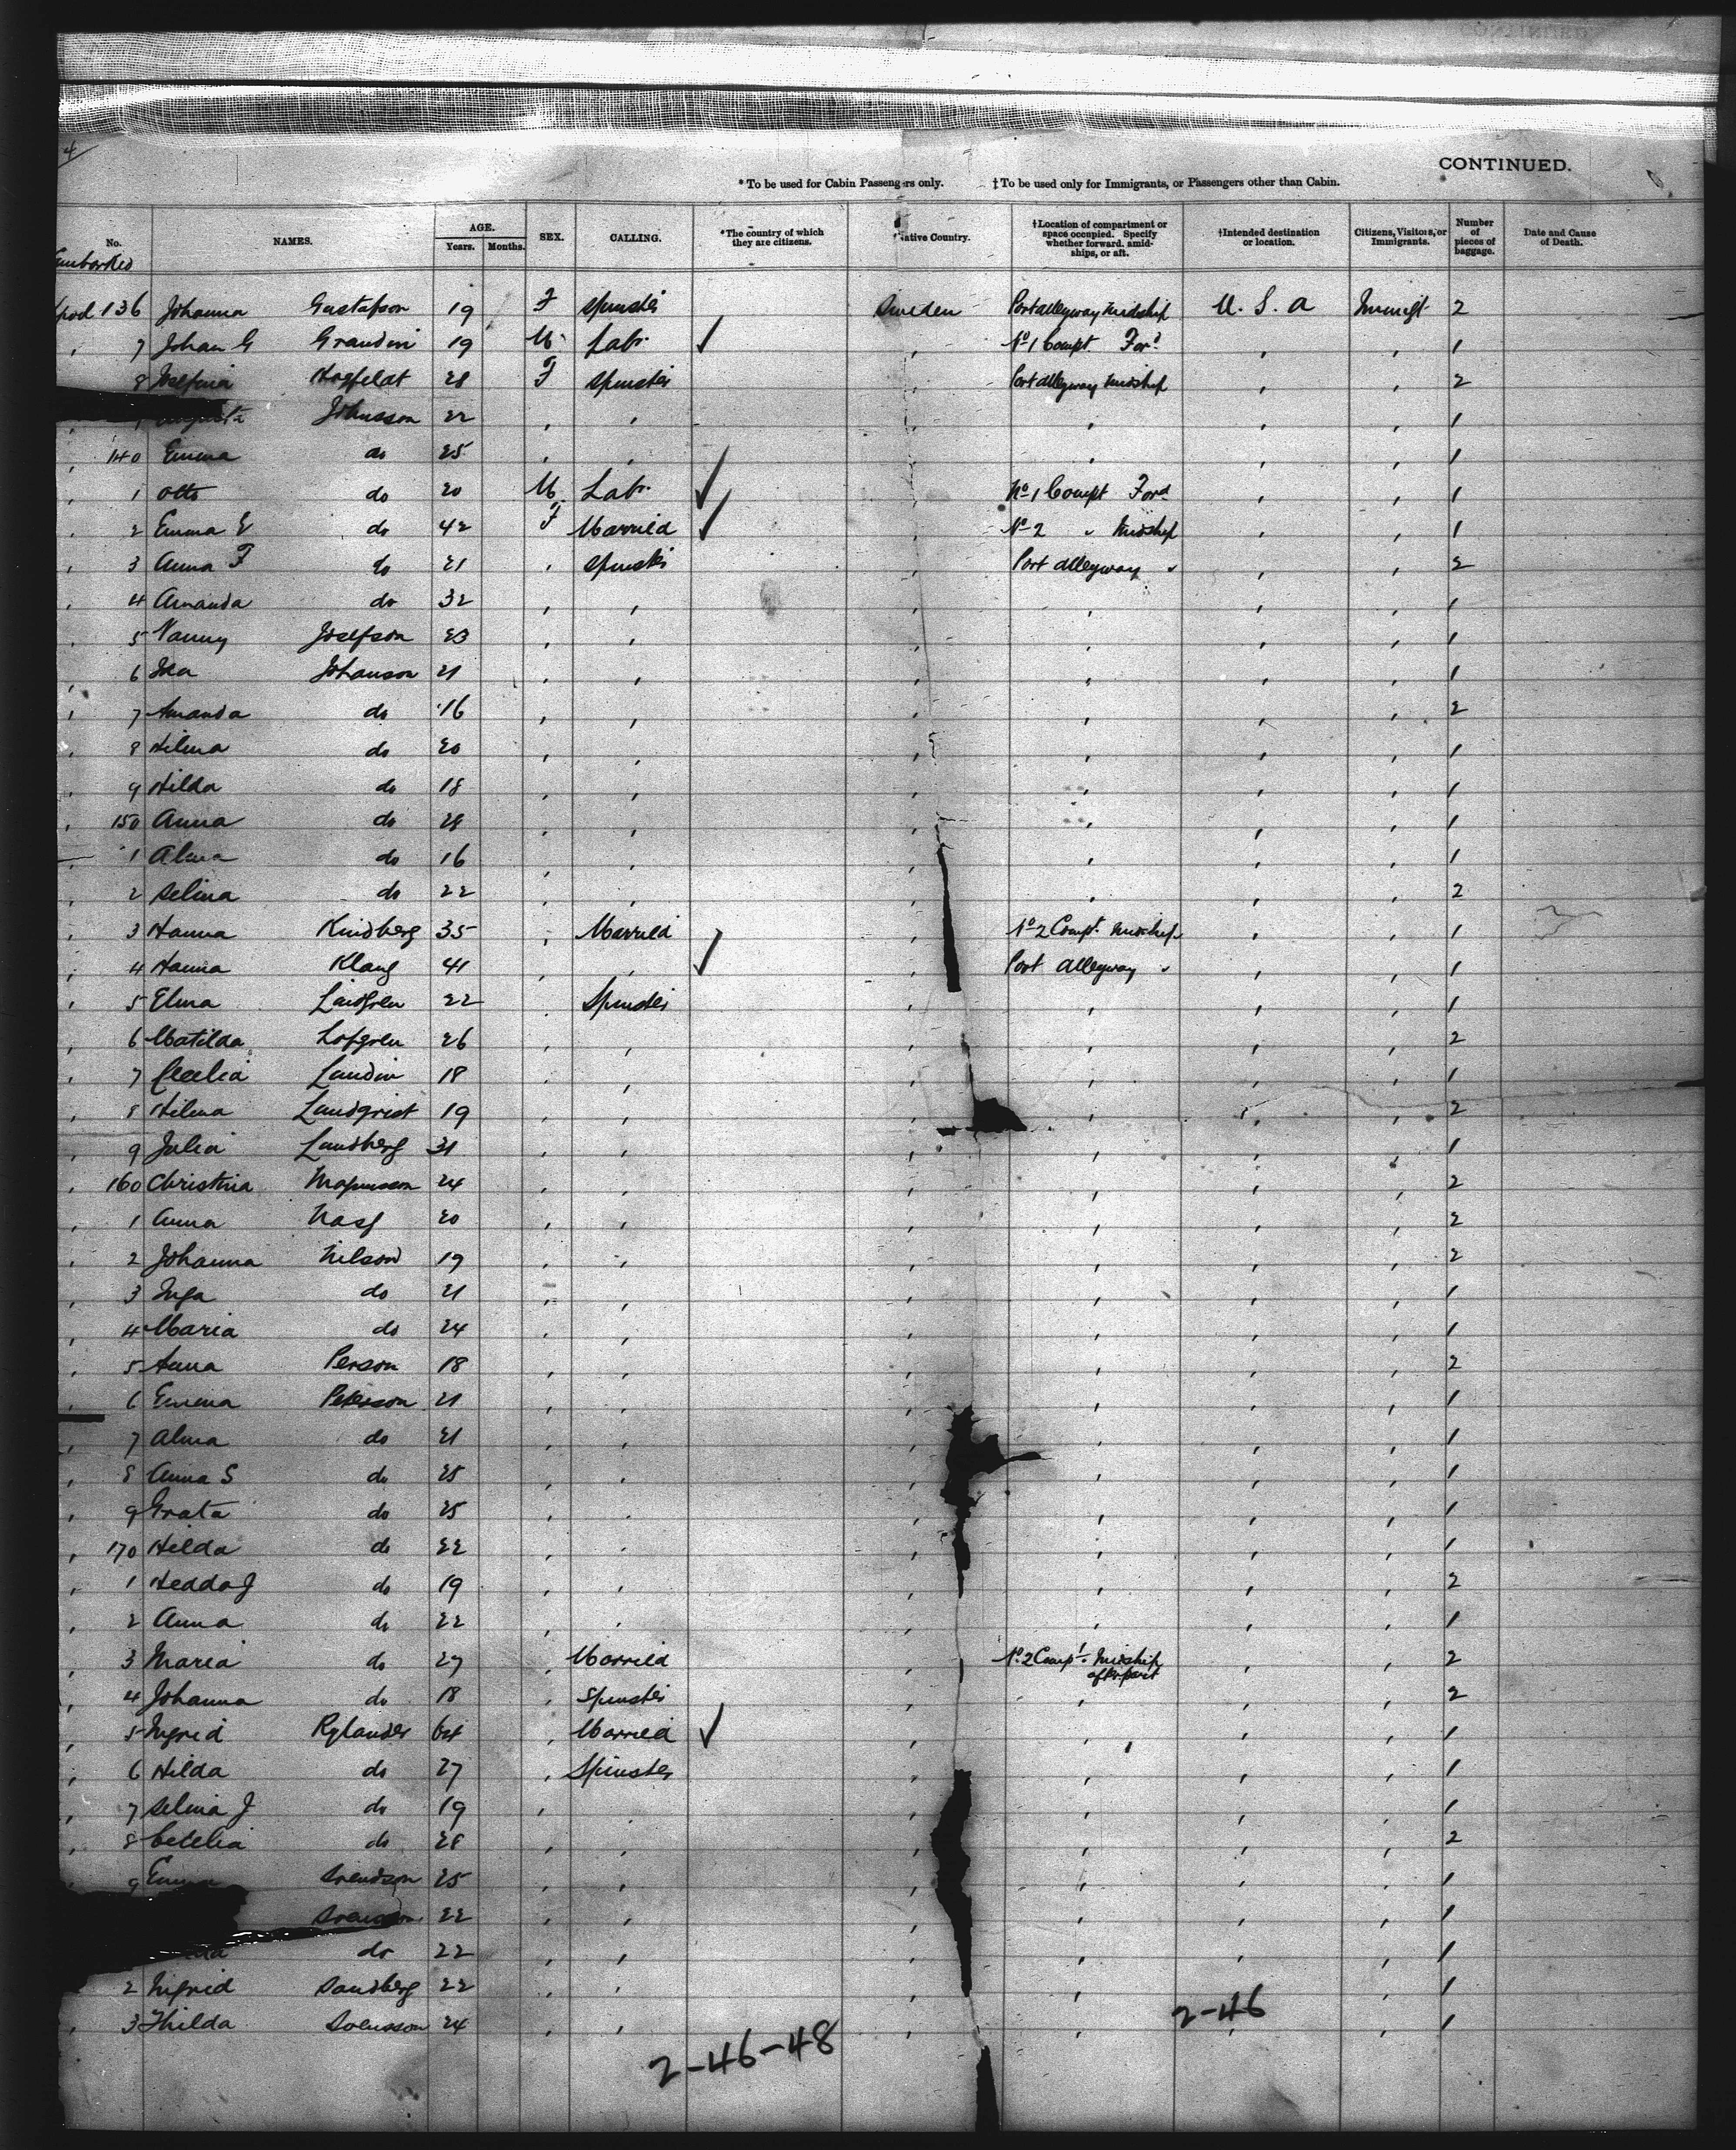 4
CONTINUED.
* To be used for Cabin Passengers only. † To be used only for Immigrants, or Passengers other than Cabin.
No. NAMES. AGE. Years. Months. SEX. CALLING. *The country of which they are citizens. Native Country. †Location of compartment or space occupied. Specify whether forward, amidships, or aft. †Intended destination or location. Citizens, Visitors, or Immigrants. Number of pieces of baggage. Date and Cause of Death.
Embarked
136 Johanna Gustafson 19 F Spinster Sweden Port alleyway Midship U. S. A Immigt 2
7 Johan G Grandin 19 M Lab. ✓ " No 1 Compt Ford " " 1
8 Hogfeldt 28 F Spinster Port alleyway Midship " " 2
Johnsson 22 " " " " " " 1
140 Emma do 25 " " " " " " 1
1 Otto do 20 M Lab. ✓ " No 1 Compt Ford " " 1
2 Emma E do 42 F Married ✓ " No 2 " Midship " " 1
3 Anna F do 21 " Spinster " Port alleyway " " " 2
4 Amanda do 32 " " " " " " 1
5 Nanny Josefson 23 " " " " " " 1
6 Ida Johanson 21 " " " " " " 1
7 Amanda do 16 " " " " " " 2
8 Hilma do 20 " " " " " " 1
9 Hilda do 18 " " " " " " 1
150 Anna do 28 " " " " " " 1
1 Alma do 16 " " " " " " 1
2 Selina do 22 " " " " " " 2
3 Hanna Kindberg 35 " Married " No 2 Compt. Midship " " 1
4 Hanna Klang 41 " " ✓ " Port alleyway " " " 1
5 Elma Lindgren 22 " Spinster " " " " 1
6 Matilda Lofgren 26 " " " " " " 2
7 Cecelia Lundin 18 " " " " " " 1
8 Hilma Lundqrist 19 " " " " " " 2
9 Julia Lundberg 31 " " " " " " 1
160 Christina Magnusson 24 " " " " " " 2
1 Anna 20 " " " " " " 2
2 Johanna Nilson 19 " " " " " " 2
3 Inga do 21 " " " " " " 1
4 Maria do 24 " " " " " " 1
5 Anna Person 18 " " " " " " 2
6 Emma Petersson 21 " " " " " " 1
7 Alma do 21 " " " " " " 1
8 Anna S do 25 " " " " " " 1
9 Grata do 25 " " " " " " 1
170 Hilda do 22 " " " " " " 1
1 Hedda J do 19 " " " " " " 2
2 Anna do 22 " " " " " " 1
3 Maria do 27 " Married " No 2 Compt. Midship after part " " 2
4 Johanna do 18 " Spinster " " " " 2
5 Ingrid Rylander 64 " Married ✓ " " " " 1
6 Hilda do 27 " Spinster " " " " 1
7 Selma J do 19 " " " " " " 1
8 Cecelia do 28 " " " " " " 2
9 Svendson 25 " " " " " " 1
Svensson 22 " " " " " " 1
do 22 " " " " " " 1
2 Ingrid Sandberg 22 " " " " " " 1
3 Thilda Svensson 24 " " " " " " 1
2-46
2-46-48